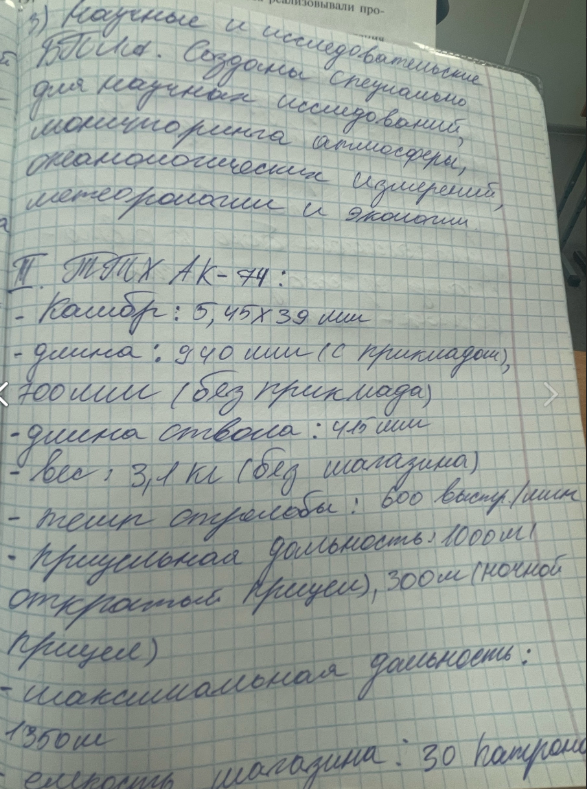 реализовывали про-
3) Научные и исследовательские
БПЛА. Созданы специально
для научных исследований,
мониторинга атмосферы,
океанологических измерений,
метеорологии и экологии
II. ТТХ АК-74:
- Калибр: 5,45х39 мм
- длина: 940 мм (с прикладом),
700 мм (без приклада)
- длина ствола: 415 мм
- вес: 3,1 кг (без магазина)
- темп стрельбы: 600 выстр/мин
- прицельная дальность: 1000м (
открытый прицел), 300м (ночной
прицел)
- максимальная дальность:
1350м
- емкость магазина: 30 патроно